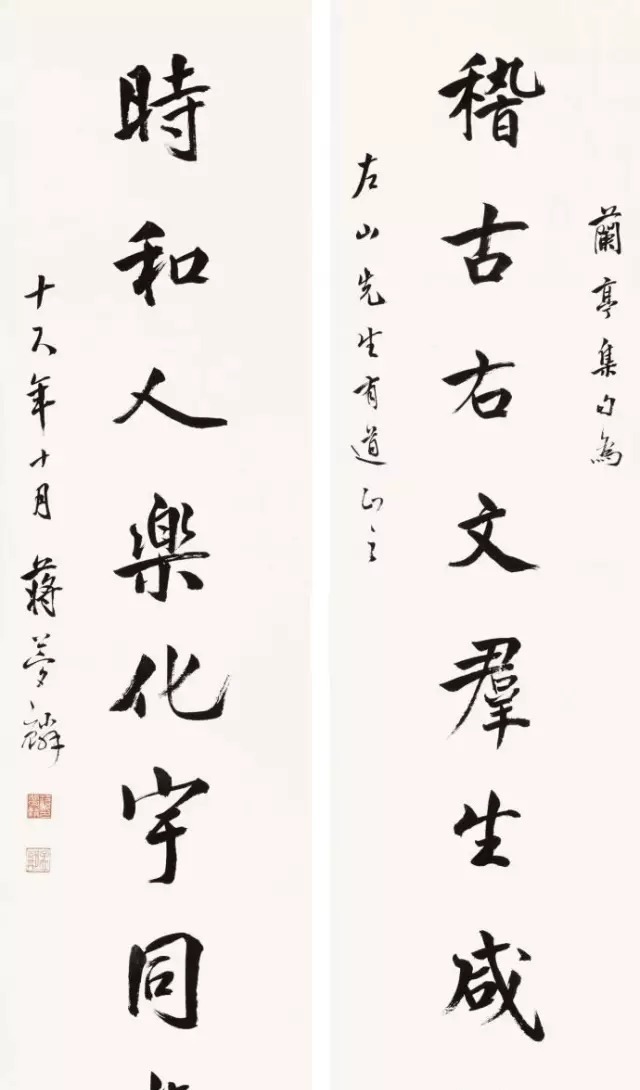 蘭亭集句為
稽古右文羣生咸
左山先生有道正之
時和人樂化宇同
十八年十月蔣夢麟